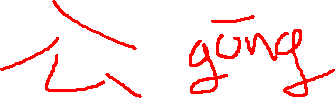 公 gōng